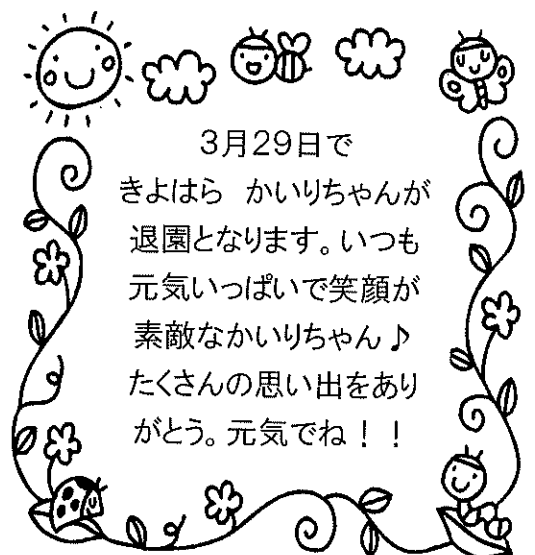 3月29日で
きよはら　かいりちゃんが
退園となります。いつも
元気いっぱいで笑顔が
素敵なかいりちゃん♪
たくさんの思い出をあり
がとう。元気でね！！